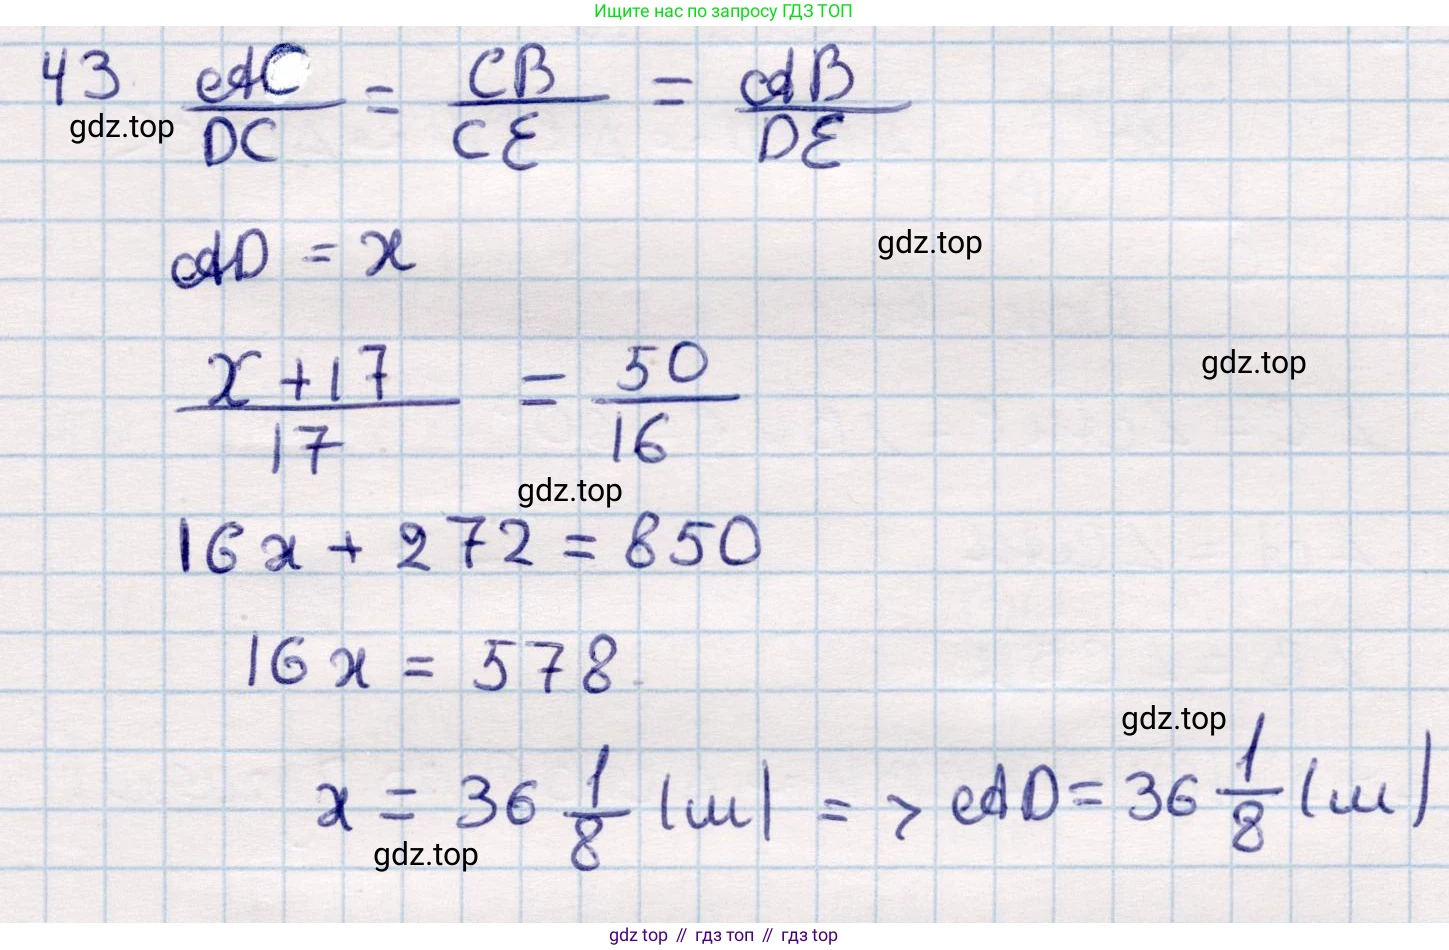 Ищите нас по запросу ГДЗ ТОП
43 AC/DC = CB/CE = AB/DE
gdz.top
AD = x
gdz.top
(x + 17)/17 = 50/16
gdz.top
gdz.top
16x + 272 = 850
16x = 578
gdz.top
x = 36 1/8 (м) => AD = 36 1/8 (м)
gdz.top
gdz top // гдз топ // гдз top